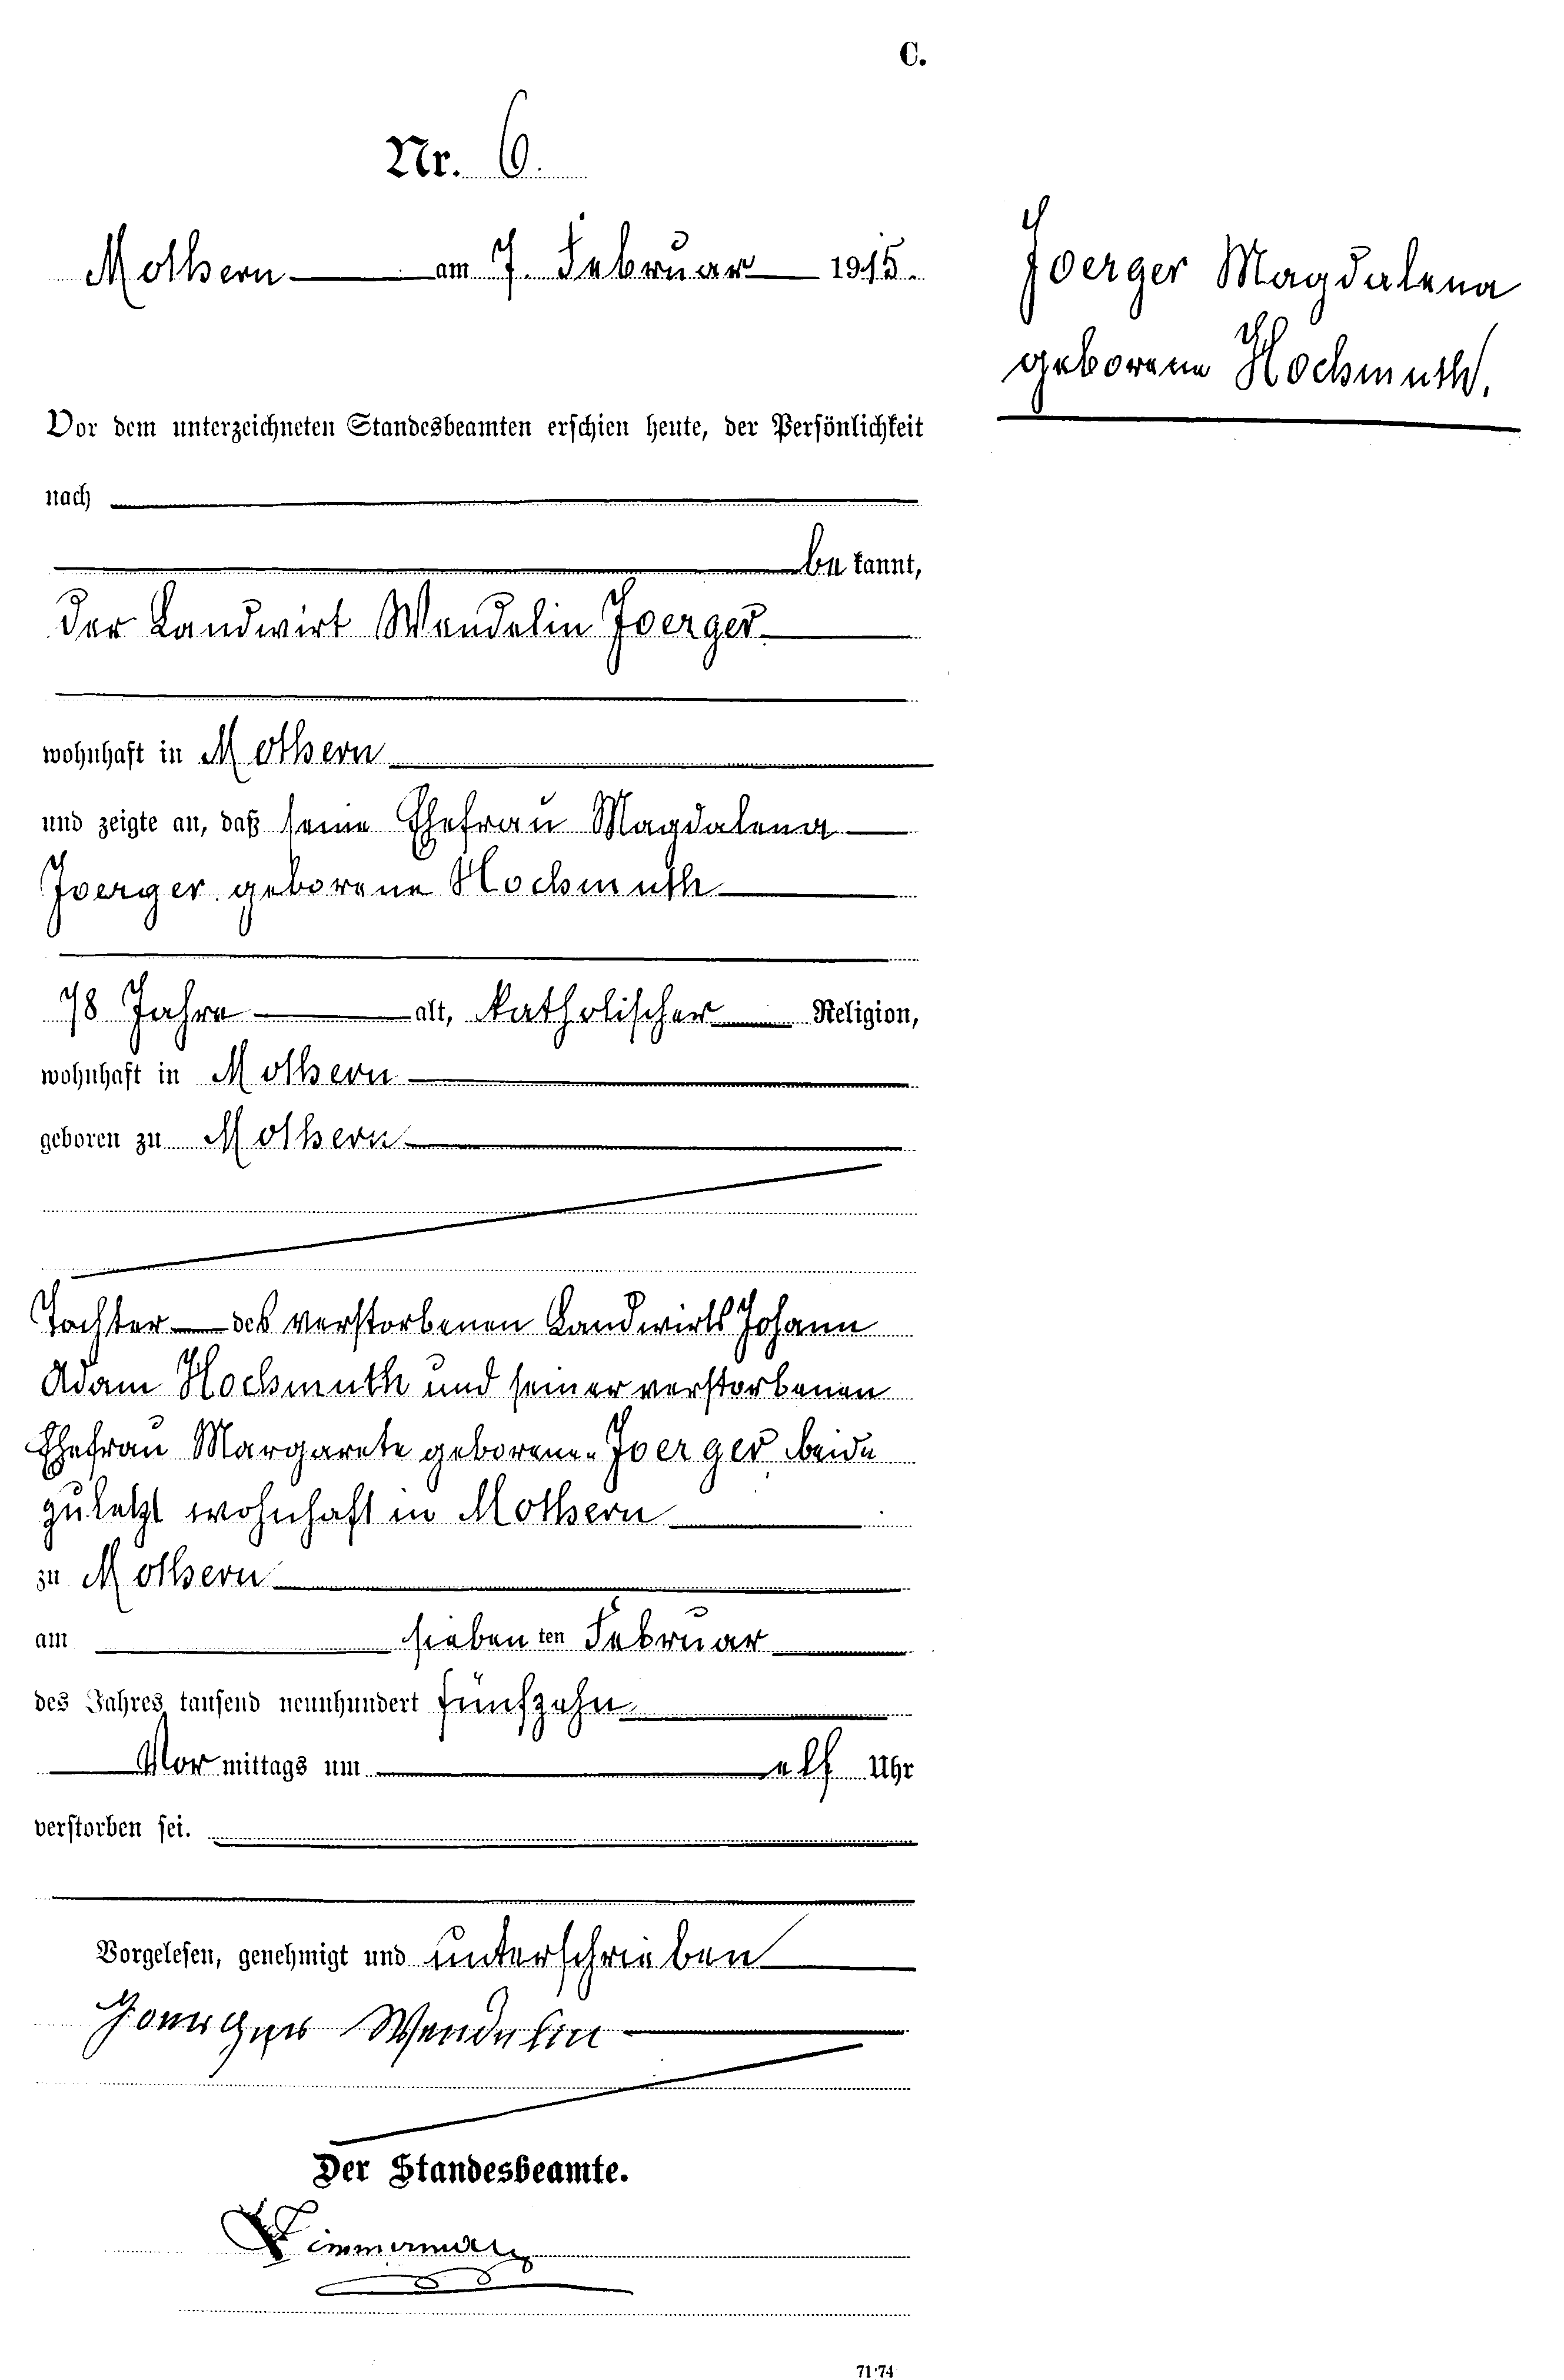 C.
Nr. 6.
Mothern am 7. Februar 1915.
Joerger Magdalena
geborene Hochmuth.
Vor dem unterzeichneten Standesbeamten erschien heute, der Persönlichkeit
nach
be kannt,
der Landwirt Wendelin Joerger
wohnhaft in Mothern
und zeigte an, daß seine Ehefrau Magdalena
Joerger geborene Hochmuth
78 Jahre alt, katholischer Religion,
wohnhaft in Mothern
geboren zu Mothern
Tochter des verstorbenen Landwirts Johann
Adam Hochmuth und seiner verstorbenen
Ehefrau Margarete geborene Joerger beide
zuletzt wohnhaft in Mothern
zu Mothern
am sieben ten Februar
des Jahres tausend neunhundert fünfzehn
Vor mittags um elf Uhr
verstorben sei.
Vorgelesen, genehmigt und unterschrieben
Joerger Wendelin
Der Standesbeamte.
Zimmermann
71/74